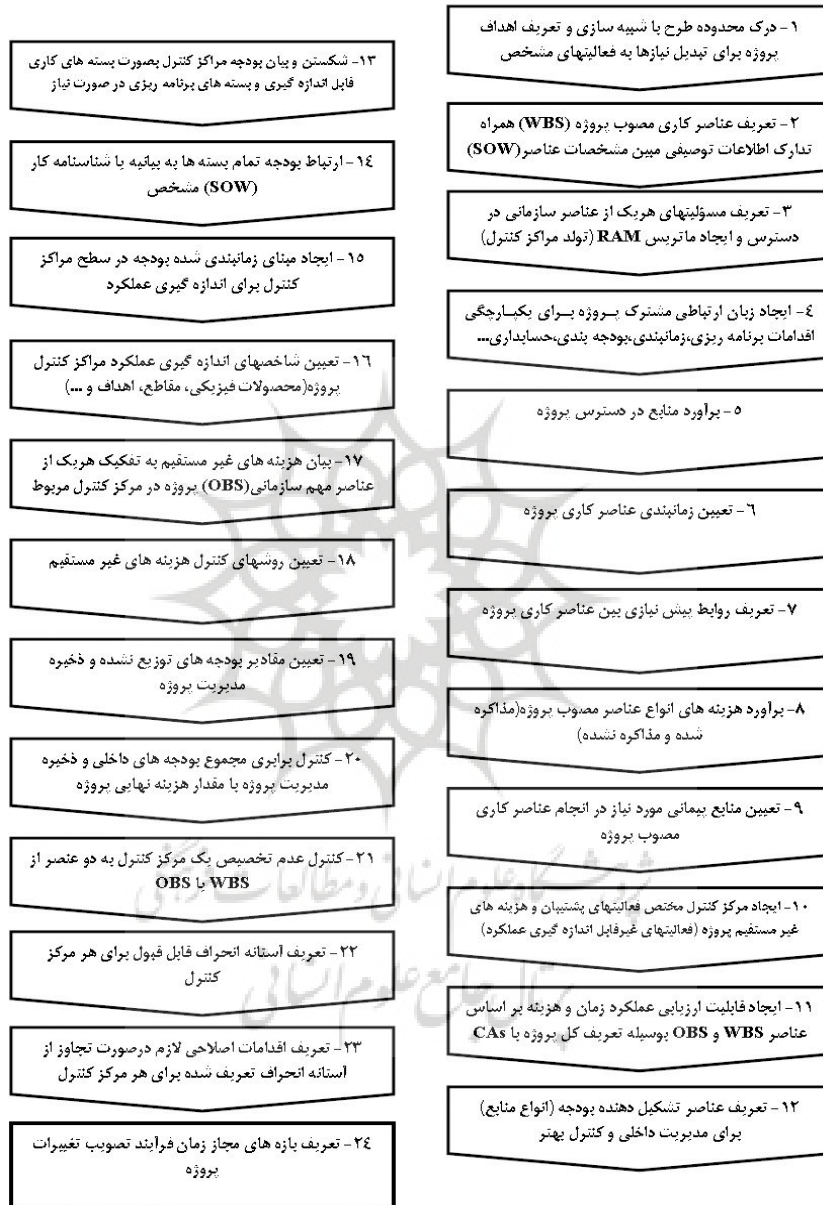 ۱- درک محدوده طرح با شبیه سازی و تعریف اهداف
پروژه برای تبدیل نیازها به فعالیتهای مشخص
۲- تعریف عناصر کاری مصوب پروژه (WBS) همراه
تدارک اطلاعات توصیفی مبین مشخصات عناصر(SOW)
۳- تعریف مسؤلیتهای هریک از عناصر سازمانی در
دسترس و ایجاد ماتریس RAM (تولد مراکز کنترل)
٤- ایجاد زبان ارتباطی مشترک پروژه برای یکپارچگی
اقدامات برنامه ریزی،زمانبندی،بودجه بندی،حسابداری...
٥- برآورد منابع در دسترس پروژه
٦- تعیین زمانبندی عناصر کاری پروژه
۷- تعریف روابط پیش نیازی بین عناصر کاری پروژه
۸- برآورد هزینه های انواع عناصر مصوب پروژه(مذاکره
شده و مذاکره نشده)
۹- تعیین منابع پیمانی مورد نیاز در انجام عناصر کاری
مصوب پروژه
۱۰- ایجاد مرکز کنترل مختص فعالیتهای پشتیبان و هزینه های
غیر مستقیم پروژه (فعالیتهای غیرقابل اندازه گیری عملکرد)
۱۱- ایجاد قابلیت ارزیابی عملکرد زمان و هزینه بر اساس
عناصر WBS و OBS بوسیله تعریف کل پروژه با CAs
۱۲- تعریف عناصر تشکیل دهنده بودجه (انواع منابع)
برای مدیریت داخلی و کنترل بهتر
۱۳- شکستن و بیان بودجه مراکز کنترل بصورت بسته های کاری
قابل اندازه گیری و بسته های برنامه ریزی در صورت نیاز
۱٤- ارتباط بودجه تمام بسته ها به بیانیه یا شناسنامه کار
(SOW) مشخص
۱٥- ایجاد مبنای زمانبندی شده بودجه در سطح مراکز
کنترل برای اندازه گیری عملکرد
۱٦- تعیین شاخصهای اندازه گیری عملکرد مراکز کنترل
پروژه(محصولات فیزیکی، مقاطع، اهداف و ...)
۱۷- بیان هزینه های غیر مستقیم به تفکیک هریک از
عناصر مهم سازمانی(OBS) پروژه در مرکز کنترل مربوط
۱۸- تعیین روشهای کنترل هزینه های غیر مستقیم
۱۹- تعیین مقادیر بودجه های توزیع نشده و ذخیره
مدیریت پروژه
۲۰- کنترل برابری مجموع بودجه های داخلی و ذخیره
مدیریت پروژه با مقدار هزینه نهایی پروژه
۲۱- کنترل عدم تخصیص یک مرکز کنترل به دو عنصر از
WBS یا OBS
۲۲- تعریف آستانه انحراف قابل قبول برای هر مرکز
کنترل
۲۳- تعریف اقدامات اصلاحی لازم درصورت تجاوز از
آستانه انحراف تعریف شده برای هر مرکز کنترل
۲٤- تعریف بازه های مجاز زمان فرآیند تصویب تغییرات
پروژه
پژوهشگاه علوم انسانی و مطالعات فرهنگی
پرتال جامع علوم انسانی